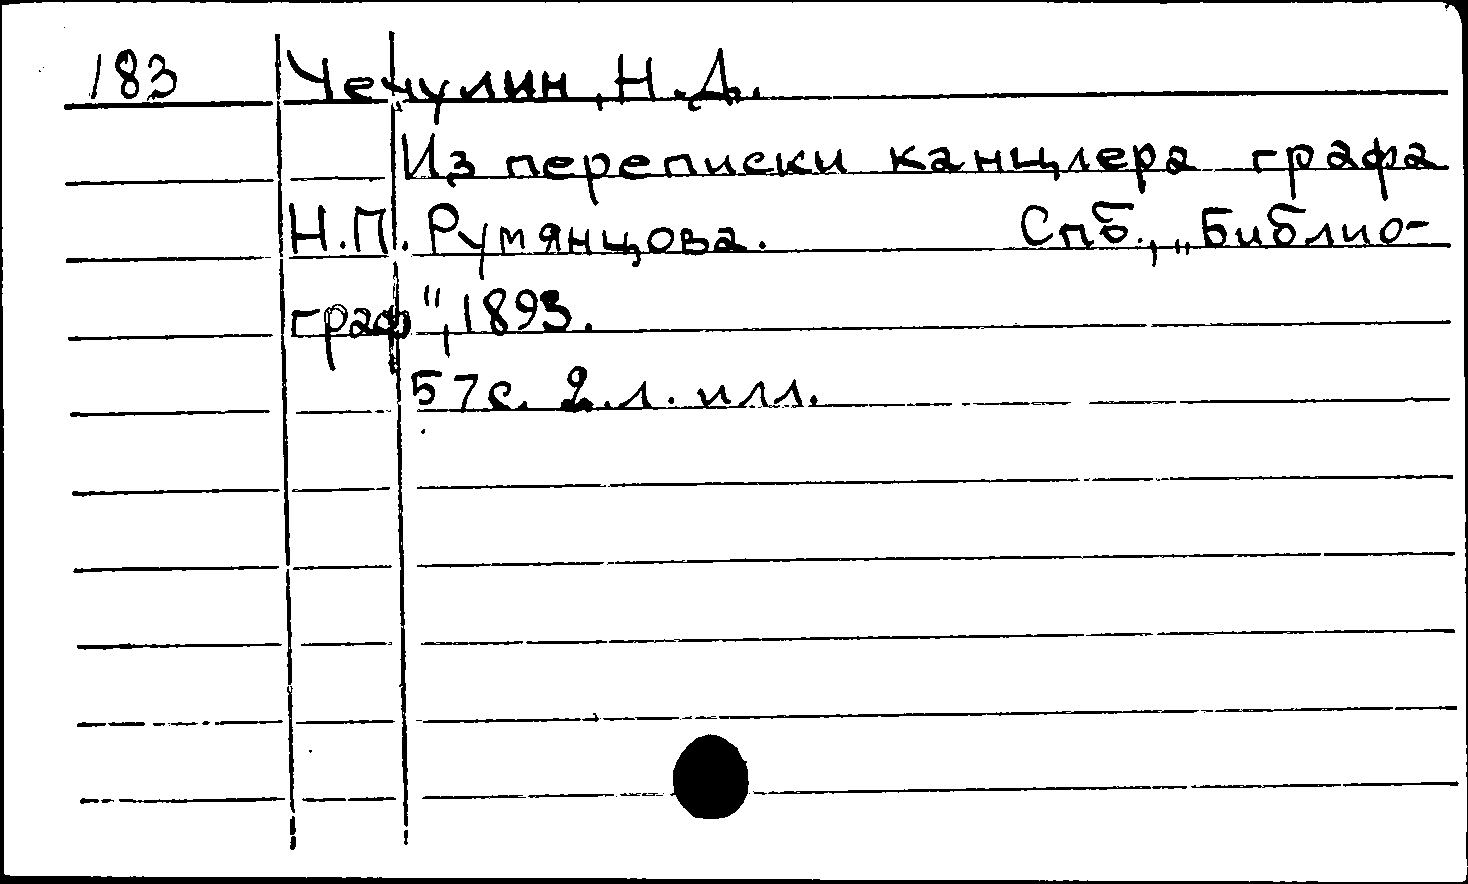 183 Чечулин, Н.Д.
Из переписки канцлера графа
Н.П. Румянцова. Спб., „Библио-
граф", 1893.
57с. 2.л. илл.